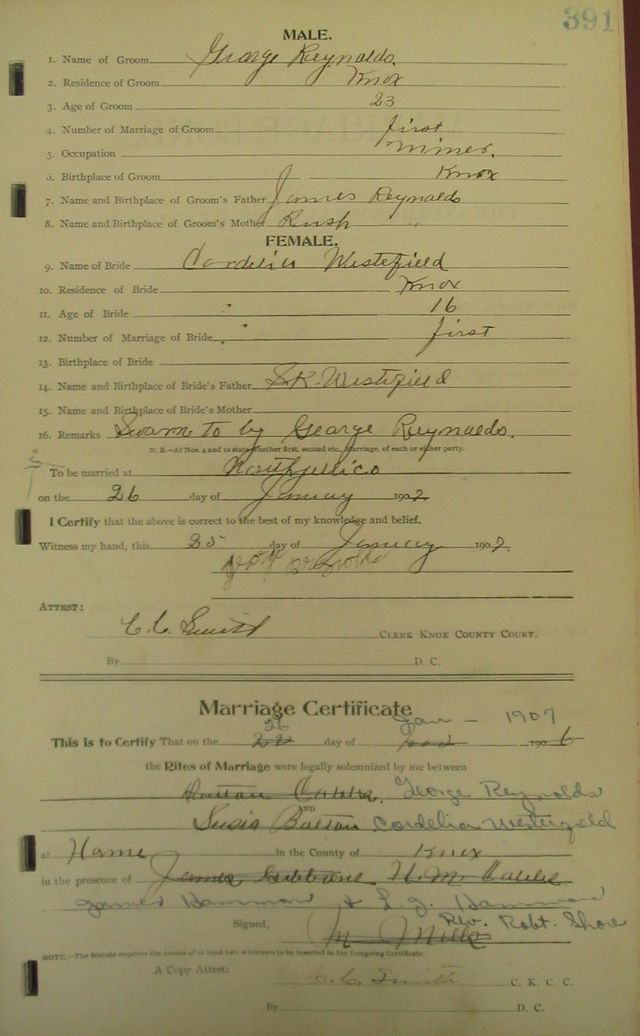 391
MALE.
1. Name of Groom George Reynolds.
2. Residence of Groom Knox
3. Age of Groom 23
4. Number of Marriage of Groom first
5. Occupation miner.
6. Birthplace of Groom Knox
7. Name and Birthplace of Groom's Father James Reynolds
8. Name and Birthplace of Groom's Mother Rush "
FEMALE.
9. Name of Bride Cordelia Westefield
10. Residence of Bride Knox
11. Age of Bride 16
12. Number of Marriage of Bride first
13. Birthplace of Bride
14. Name and Birthplace of Bride's Father S.K. Westefield
15. Name and Birthplace of Bride's Mother
16. Remarks Sworn to by George Reynolds.
N. B.—At Nos. 4 and 12 state whether first, second etc, Marriage, of each or either party.
To be married at North Jellico
on the 26 day of January 1907
I Certify that the above is correct to the best of my knowledge and belief.
Witness my hand, this 25 day of January 1907.
ATTEST:
C.C. Smith CLERK KNOX COUNTY COURT.
By D. C.
Marriage Certificate
26 Jan - 1907
This is to Certify That on the day of 1906
the Rites of Marriage were legally solemnized by me between
George Reynolds
AND
Susie Cordelia Westerfield
at Home in the County of Knox
in the presence of James H. M.
James Hammon & L. J. Hammon
Rev. Robt. Shore
Signed, M Mills
NOTE.—The Statute requires the names of at least two witnesses to be inserted in the foregoing Certificate.
A Copy Attest: C.C. Smith C. K. C. C.
By D. C.